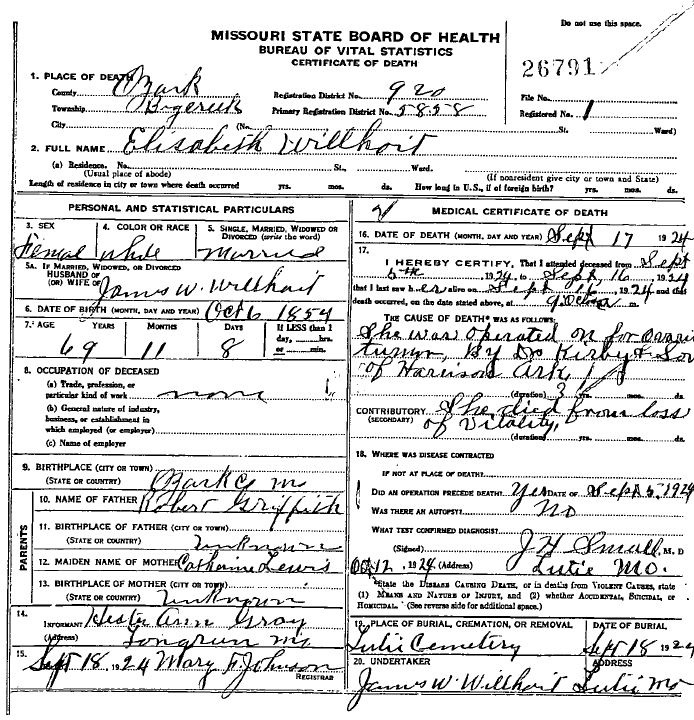 Do not use this space.
MISSOURI STATE BOARD OF HEALTH
BUREAU OF VITAL STATISTICS
CERTIFICATE OF DEATH
26791
1. PLACE OF DEATH
County Ozark Registration District No. 920 File No.
Township Primary Registration District No. 5858 Registered No. 1
City (No. St. Ward)
2. FULL NAME Elisabeth Willhoit
(a) Residence. No. St., Ward.
(Usual place of abode) (If nonresident give city or town and State)
Length of residence in city or town where death occurred yrs. mos. ds. How long in U.S., if of foreign birth? yrs. mos. ds.
PERSONAL AND STATISTICAL PARTICULARS
3. SEX 4. COLOR OR RACE 5. SINGLE, MARRIED, WIDOWED OR DIVORCED (write the word)
Femal white Married
5A. IF MARRIED, WIDOWED, OR DIVORCED
HUSBAND OF
(OR) WIFE OF James W. Willhoit
6. DATE OF BIRTH (MONTH, DAY AND YEAR) Oct 6 1854
7. AGE YEARS MONTHS DAYS If LESS than 1 day, ....hrs. or ....min.
69 11 8
8. OCCUPATION OF DECEASED
(a) Trade, profession, or
particular kind of work none
(b) General nature of industry,
business, or establishment in
which employed (or employer)
(c) Name of employer
9. BIRTHPLACE (CITY OR TOWN)
(STATE OR COUNTRY) Ozark Co Mo
PARENTS
10. NAME OF FATHER Robert Griffith
11. BIRTHPLACE OF FATHER (CITY OR TOWN)
(STATE OR COUNTRY) Unknown
12. MAIDEN NAME OF MOTHER Catharine Lewis
13. BIRTHPLACE OF MOTHER (CITY OR TOWN)
(STATE OR COUNTRY) Unknown
14.
INFORMANT Hester Ann Gray
(Address) Longrun Mo
15. Sept 18, 1924 Mary F. Johnson
REGISTRAR
21 MEDICAL CERTIFICATE OF DEATH
16. DATE OF DEATH (MONTH, DAY AND YEAR) Sept 17 1924
17.
I HEREBY CERTIFY, That I attended deceased from Sept
6th 1924 to Sept, 16 1924
that I last saw her alive on Sept 16 1924 and that
death occurred, on the date stated above, at 9. m.
THE CAUSE OF DEATH* WAS AS FOLLOWS:
She was operated on for
tumor, By Dr Kirby & Son
of Harrison Ark,
(duration) yrs. mos. ds.
CONTRIBUTORY She died from loss
(SECONDARY) of vitality,
(duration) yrs. mos. ds.
18. WHERE WAS DISEASE CONTRACTED
IF NOT AT PLACE OF DEATH?
DID AN OPERATION PRECEDE DEATH? Yes DATE OF Sept 5, 1924
WAS THERE AN AUTOPSY? No
WHAT TEST CONFIRMED DIAGNOSIS?
(Signed) J H Small, M. D
Oct 12, 1924 (Address) Lutie Mo.
*State the DISEASE CAUSING DEATH, or in deaths from VIOLENT CAUSES, state
(1) MEANS AND NATURE OF INJURY, and (2) whether ACCIDENTAL, SUICIDAL, or
HOMICIDAL. (See reverse side for additional space.)
19. PLACE OF BURIAL, CREMATION, OR REMOVAL DATE OF BURIAL
Lutie Cemetery Sept 18 1924
20. UNDERTAKER ADDRESS
James W. Willhoit Lutie Mo